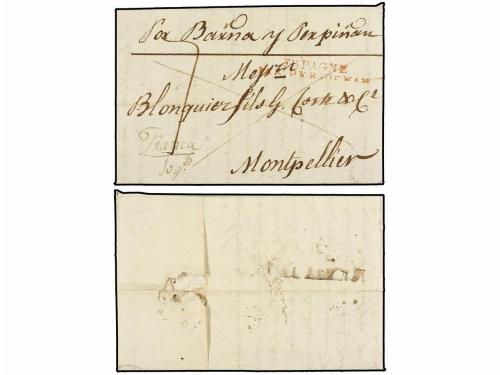 Por Barna y Perpiñan
ESPAGNE
PAR PERPIGNAN
Messrs
Blonquier fils G. Cort & Ce
Franca
Montpellier